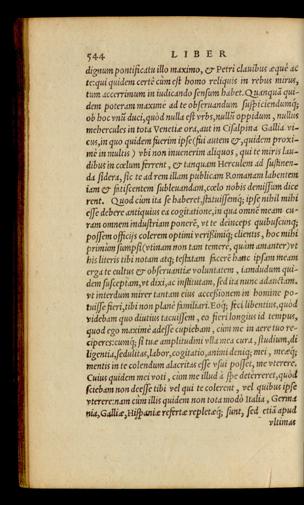 544 LIBER
dignum pontificatu illo maximo, & Petri clauibus æquè ac
te: qui quidem certè cùm est homo reliquis in rebus mirus,
tum acerrimum in iudicando sensum habet. Quanquā qui-
dem poteram maximè ad te obseruandum suspiciendumq;
ob hoc vnū duci, quòd nulla est vrbs, nullū oppidum, nullus
mehercules in tota Venetiæ ora, aut in Cisalpina Gallia vi-
cus, in quo quidem fuerim ipse (fui autem &, quidem proxi-
mè in multis) vbi non inuenerim aliquos, qui te miris lau-
dibus in cœlum ferrent, & tanquam Herculem ad sustinen-
da sidera, sic te ad rem illam publicam Romanam labentem
iam & fatiscentem subleuandam, cœlo nobis demissum dice
rent. Quod cùm ita se haberet, statuissemq; ipse nihil mihi
esse debere antiquius ea cogitatione, in qua omnē meam cu-
ram omnem industriam ponerē, vt te deinceps quibuscunq;
possem officijs colerem optimi verissimiq; clientis, hoc mihi
primùm sumpsi (vtinam non tam temerè, quàm amanter) vt
his literis tibi notam atq; testatam facerē hanc ipsam meam
erga te cultus & obseruantiæ voluntatem, iamdudum qui-
dem susceptam, vt dixi, ac institutam, sed ita nunc adauctam,
vt interdum mirer tantam eius accessionem in homine po-
tuisse fieri, tibi non planè familiari. Eoq; feci libentius, quòd
videbam quo diutius tacuissem, eo fieri longius id tempus,
quod ego maximè adesse cupiebam, cùm me in aere tuo re-
ciperes: cumq; si tuæ amplitudini vlla mea cura, studium, di
ligentia, sedulitas, labor, cogitatio, animi deniq; mei, meæq;
mentis in te colendum alacritas esse vsui posset, me vterere.
Cuius quidem mei voti, cùm me illud à spe deterreret, quòd
sciebam non deesse tibi vel qui te colerent, vel quibus ipse
vterere: nam cùm illis quidem non tota modò Italia, Germa
nia, Galliæ, Hispaniæ refertæ repletæq; sunt, sed etiā apud
vltimas